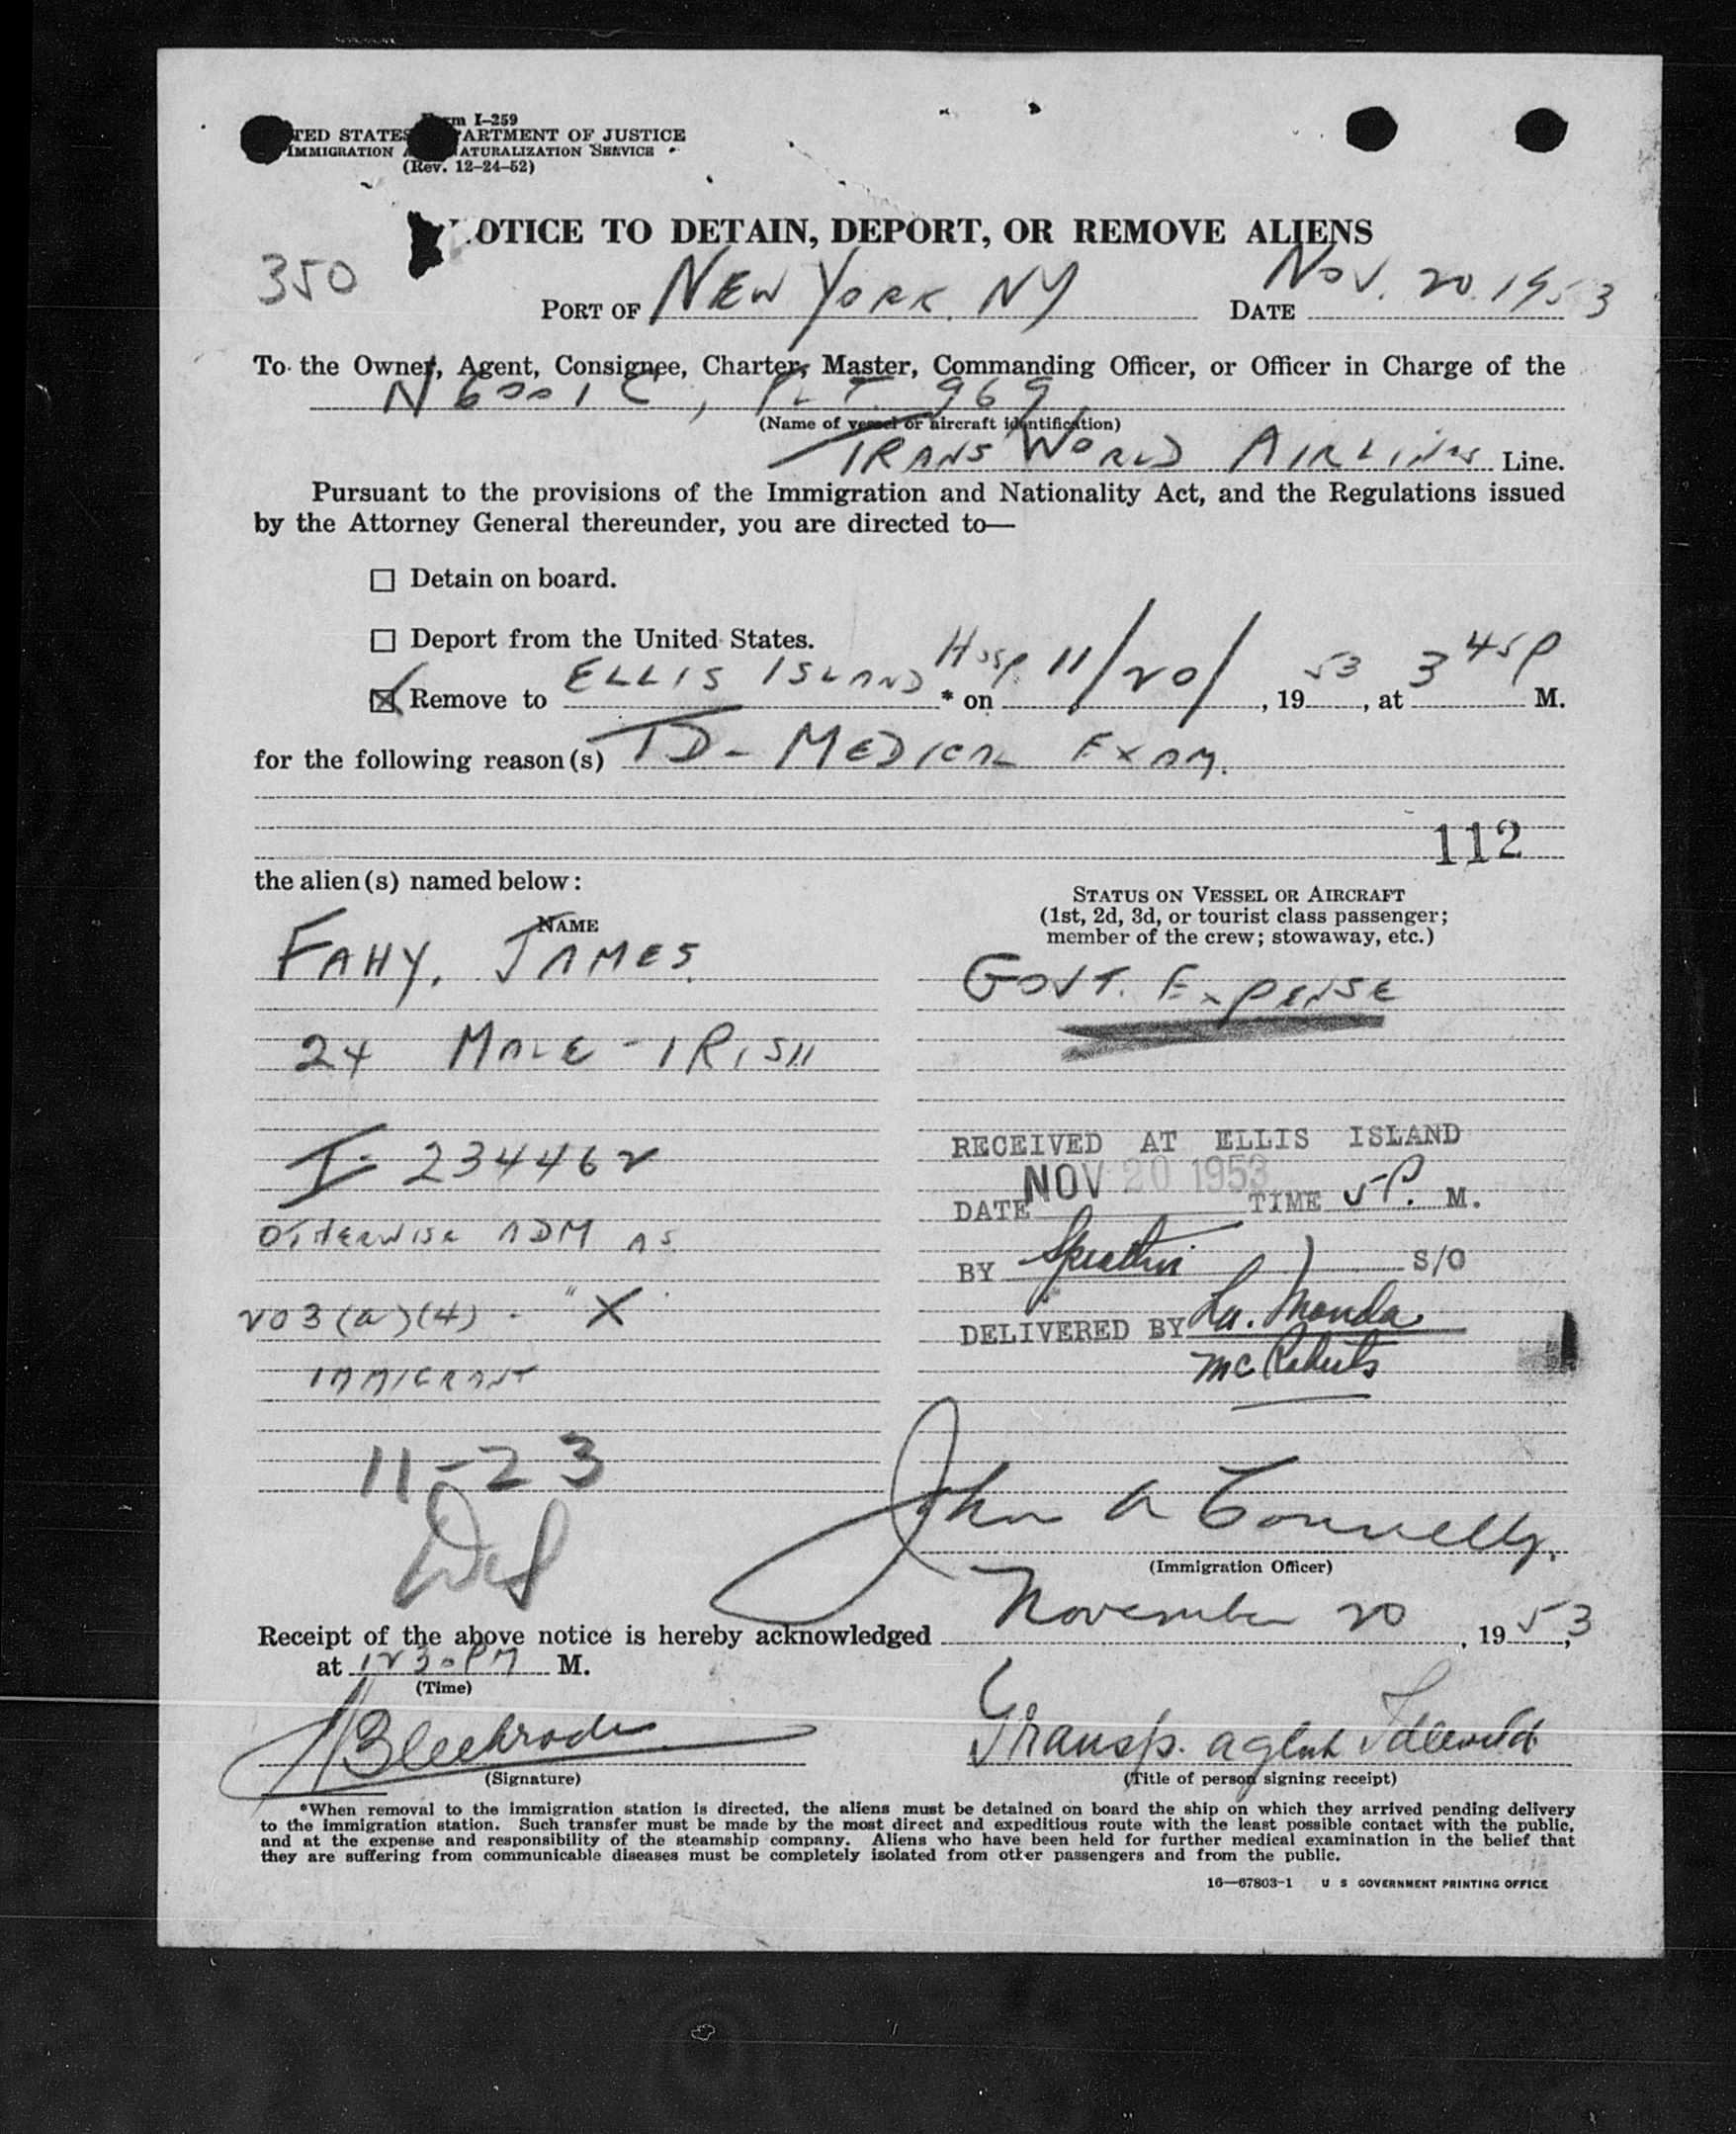 Form I-259
UNITED STATES DEPARTMENT OF JUSTICE
IMMIGRATION AND NATURALIZATION SERVICE
(Rev. 12-24-52)
NOTICE TO DETAIN, DEPORT, OR REMOVE ALIENS
350
PORT OF NEW YORK, NY DATE NOV. 20. 1953
To the Owner, Agent, Consignee, Charter, Master, Commanding Officer, or Officer in Charge of the
N 6001 C, FLT. 969
(Name of vessel or aircraft identification)
TRANS WORLD AIRLINES Line.
Pursuant to the provisions of the Immigration and Nationality Act, and the Regulations issued
by the Attorney General thereunder, you are directed to—
☐ Detain on board.
☐ Deport from the United States.
☒ Remove to ELLIS ISLAND Hosp. * on 11/20/, 1953, at 3 45 P M.
for the following reason(s) TD - MEDICAL EXAM.
112
the alien(s) named below:
NAME
STATUS ON VESSEL OR AIRCRAFT
(1st, 2d, 3d, or tourist class passenger;
member of the crew; stowaway, etc.)
FAHY, JAMES.
GOVT. EXPENSE
24 MALE - IRISH
I- 234462
RECEIVED AT ELLIS ISLAND
DATE NOV 20 1953 TIME 5 P. M.
OTHERWISE ADM AS
BY S/O
203(a)(4) - "X"
DELIVERED BY La. Monda
McRoberts
IMMIGRANT
11-23
John A Connelly.
(Immigration Officer)
Receipt of the above notice is hereby acknowledged November 20, 1953,
at 1230 PM M.
(Time)
Transp. agent Idlewild
(Signature)
(Title of person signing receipt)
*When removal to the immigration station is directed, the aliens must be detained on board the ship on which they arrived pending delivery
to the immigration station. Such transfer must be made by the most direct and expeditious route with the least possible contact with the public,
and at the expense and responsibility of the steamship company. Aliens who have been held for further medical examination in the belief that
they are suffering from communicable diseases must be completely isolated from other passengers and from the public.
16—67803-1 U S GOVERNMENT PRINTING OFFICE